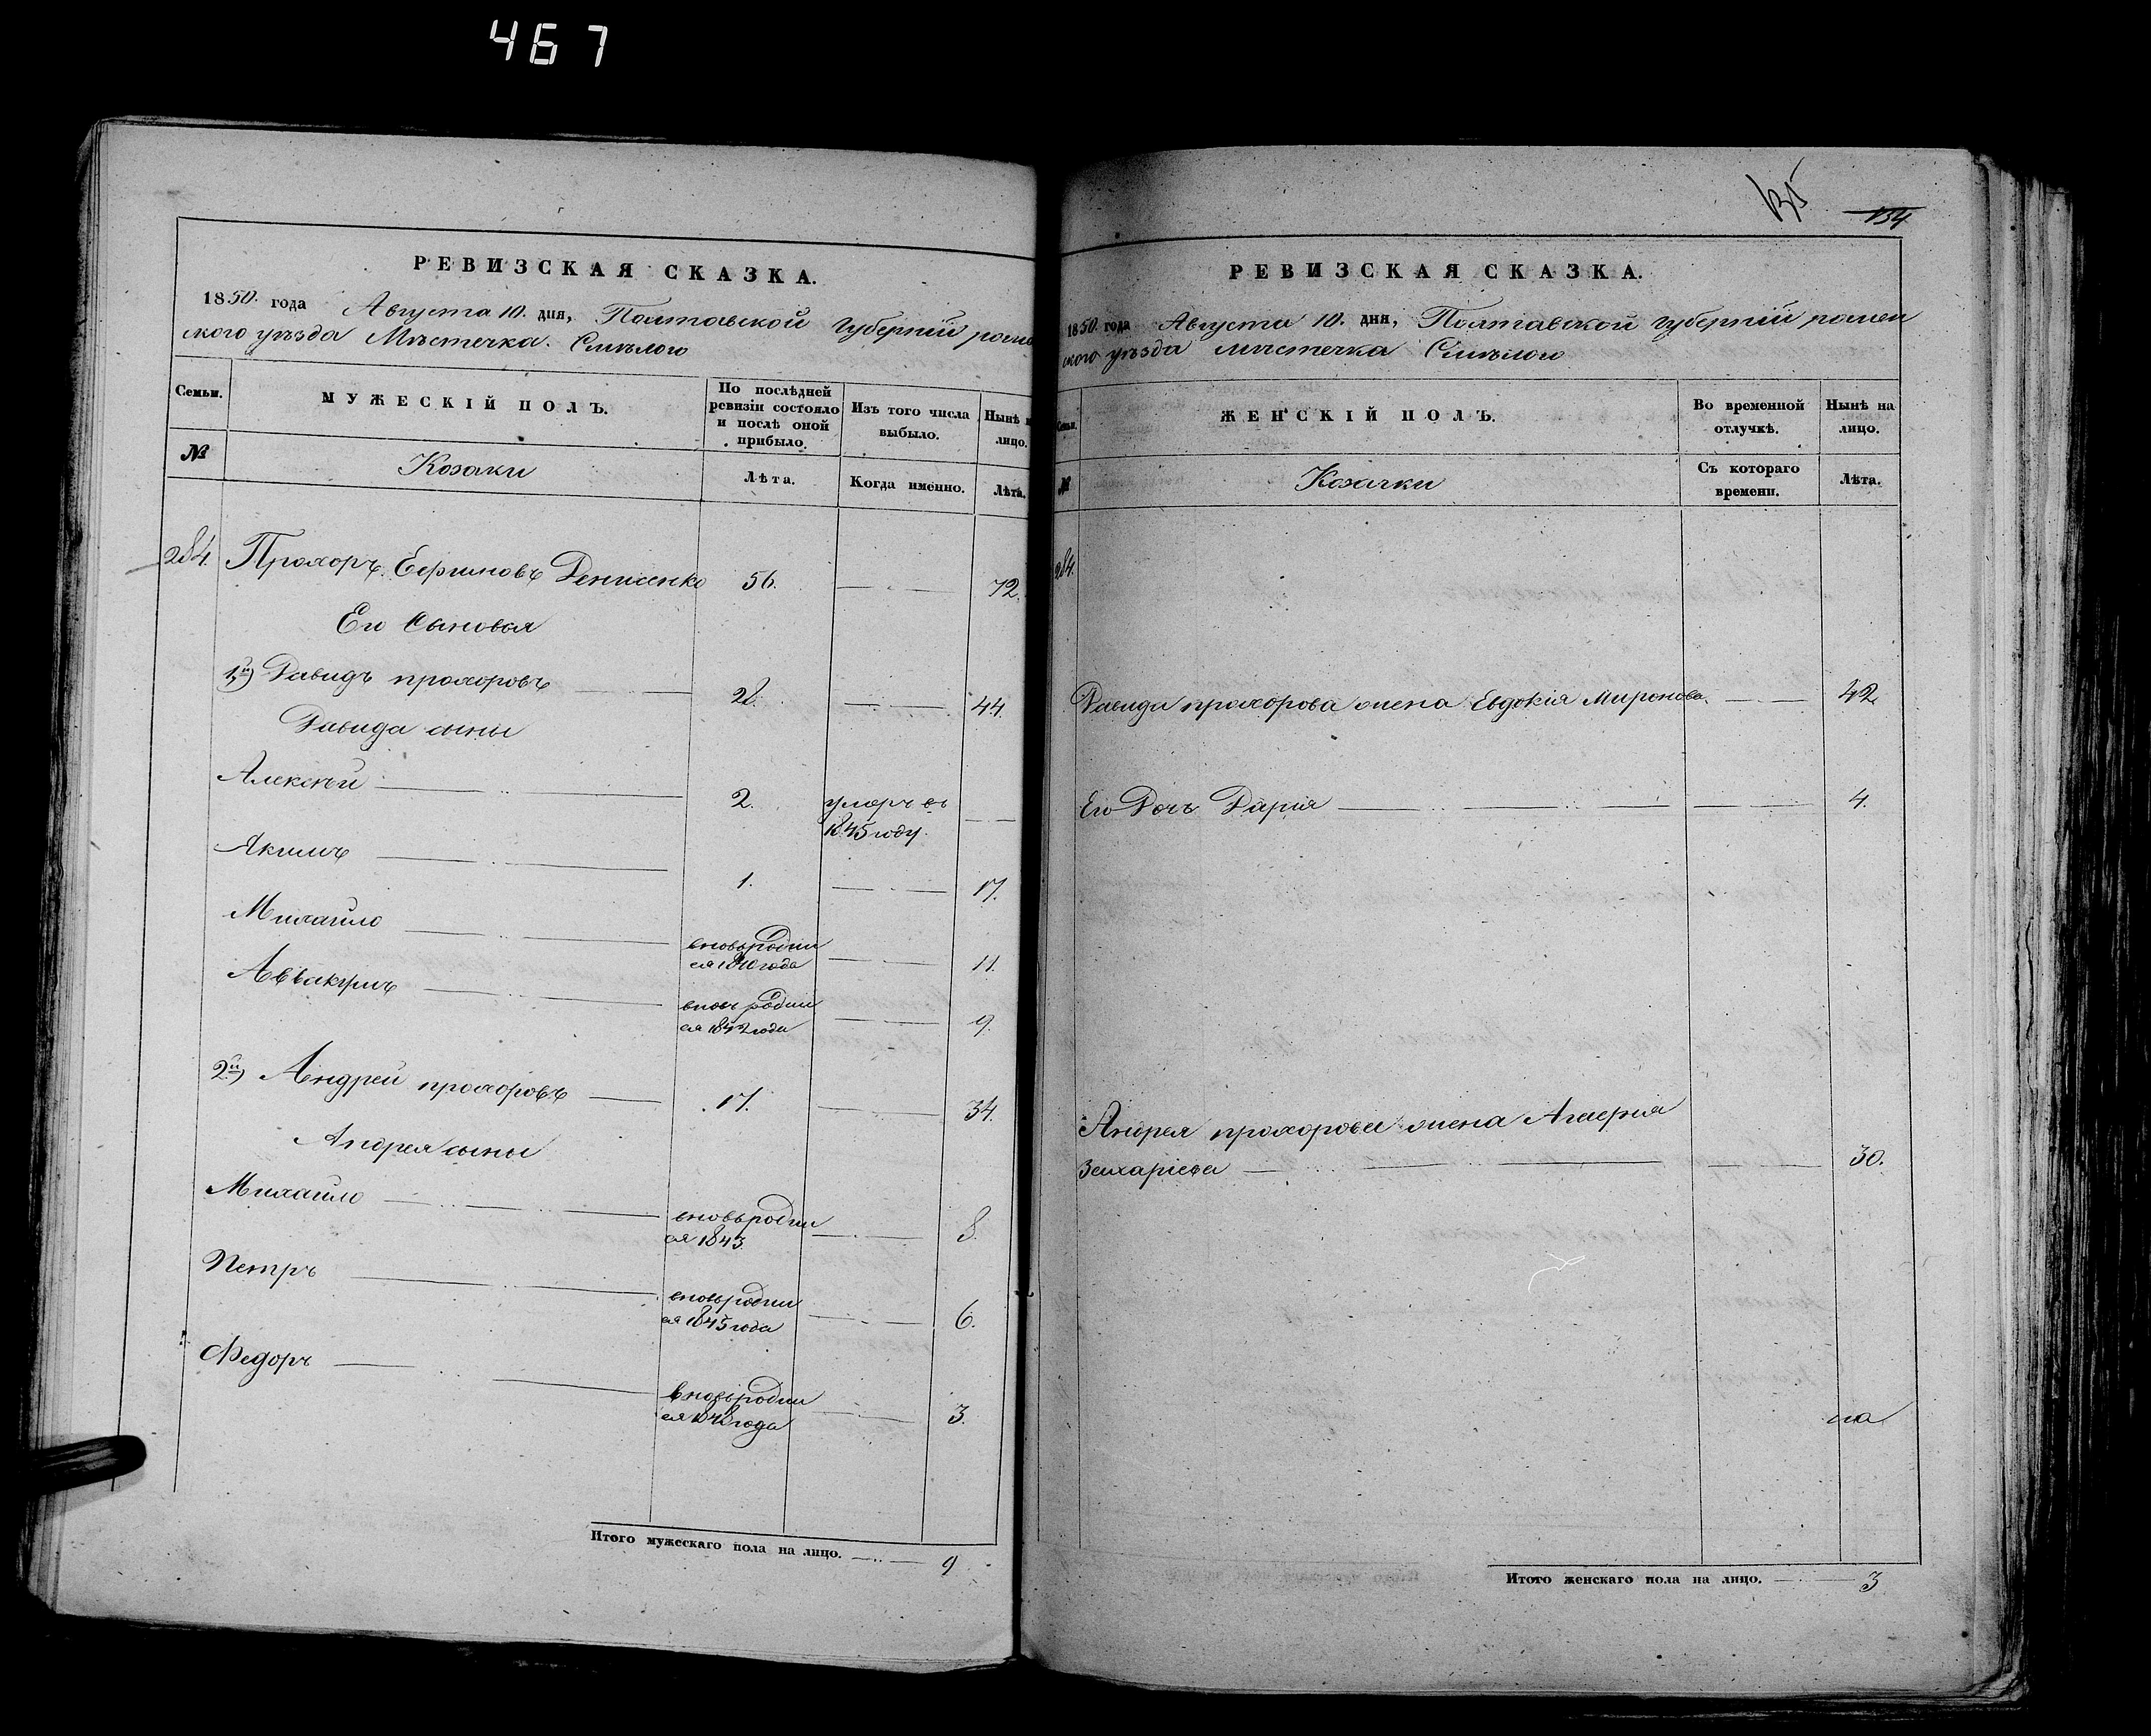 467
РЕВИЗСКАЯ СКАЗКА.
1850. года Августа 10. дня, Полтавской Губерніи ромен
ского уѣзда Мѣстечка. Смѣлого
Семьи.
МУЖЕСКІЙ ПОЛЪ.
По послѣдней ревизіи состояло и послѣ оной прибыло.
Изъ того числа выбыло.
Нынѣ н лицо.
№
Козаки
Лѣта.
Когда именно.
Лѣта.
284. Прохоръ Ефимовъ Денисенко 56. 72.
Его Сыновья
1й) Давидъ прохоровъ 28. 44.
Давида сыны
Алексѣй 2. умеръ въ
1845 году.
Якимъ 1. 17.
Михайло вновь родил
ся 1840 года 11.
Аввакумъ вновь родил
ся 1842 года 9.
2й) Андрей прохоровъ 17. 34.
Андрея сыны
Михайло вновь родил
ся 1843. 8.
Петръ вновь родил
ся 1845 года 6.
Федоръ вновь родил
ся 1848 года 3.
Итого мужескаго пола на лицо. 9
135 134
РЕВИЗСКАЯ СКАЗКА.
1850. года Августа 10. дня, Полтавской губерніи ромен
ского уѣзда мѣстечка Смѣлого
Семьи.
ЖЕНСКІЙ ПОЛЪ.
Во временной отлучкѣ.
Нынѣ на лицо.
№
Козачки
Съ котораго времени.
Лѣта.
284.
Давида прохорова жена Евдокія Миронова 42
Его Дочь Дарія 4.
Андрея прохорова жена
Захаріева 30.
на
Итого женскаго пола на лицо. 3